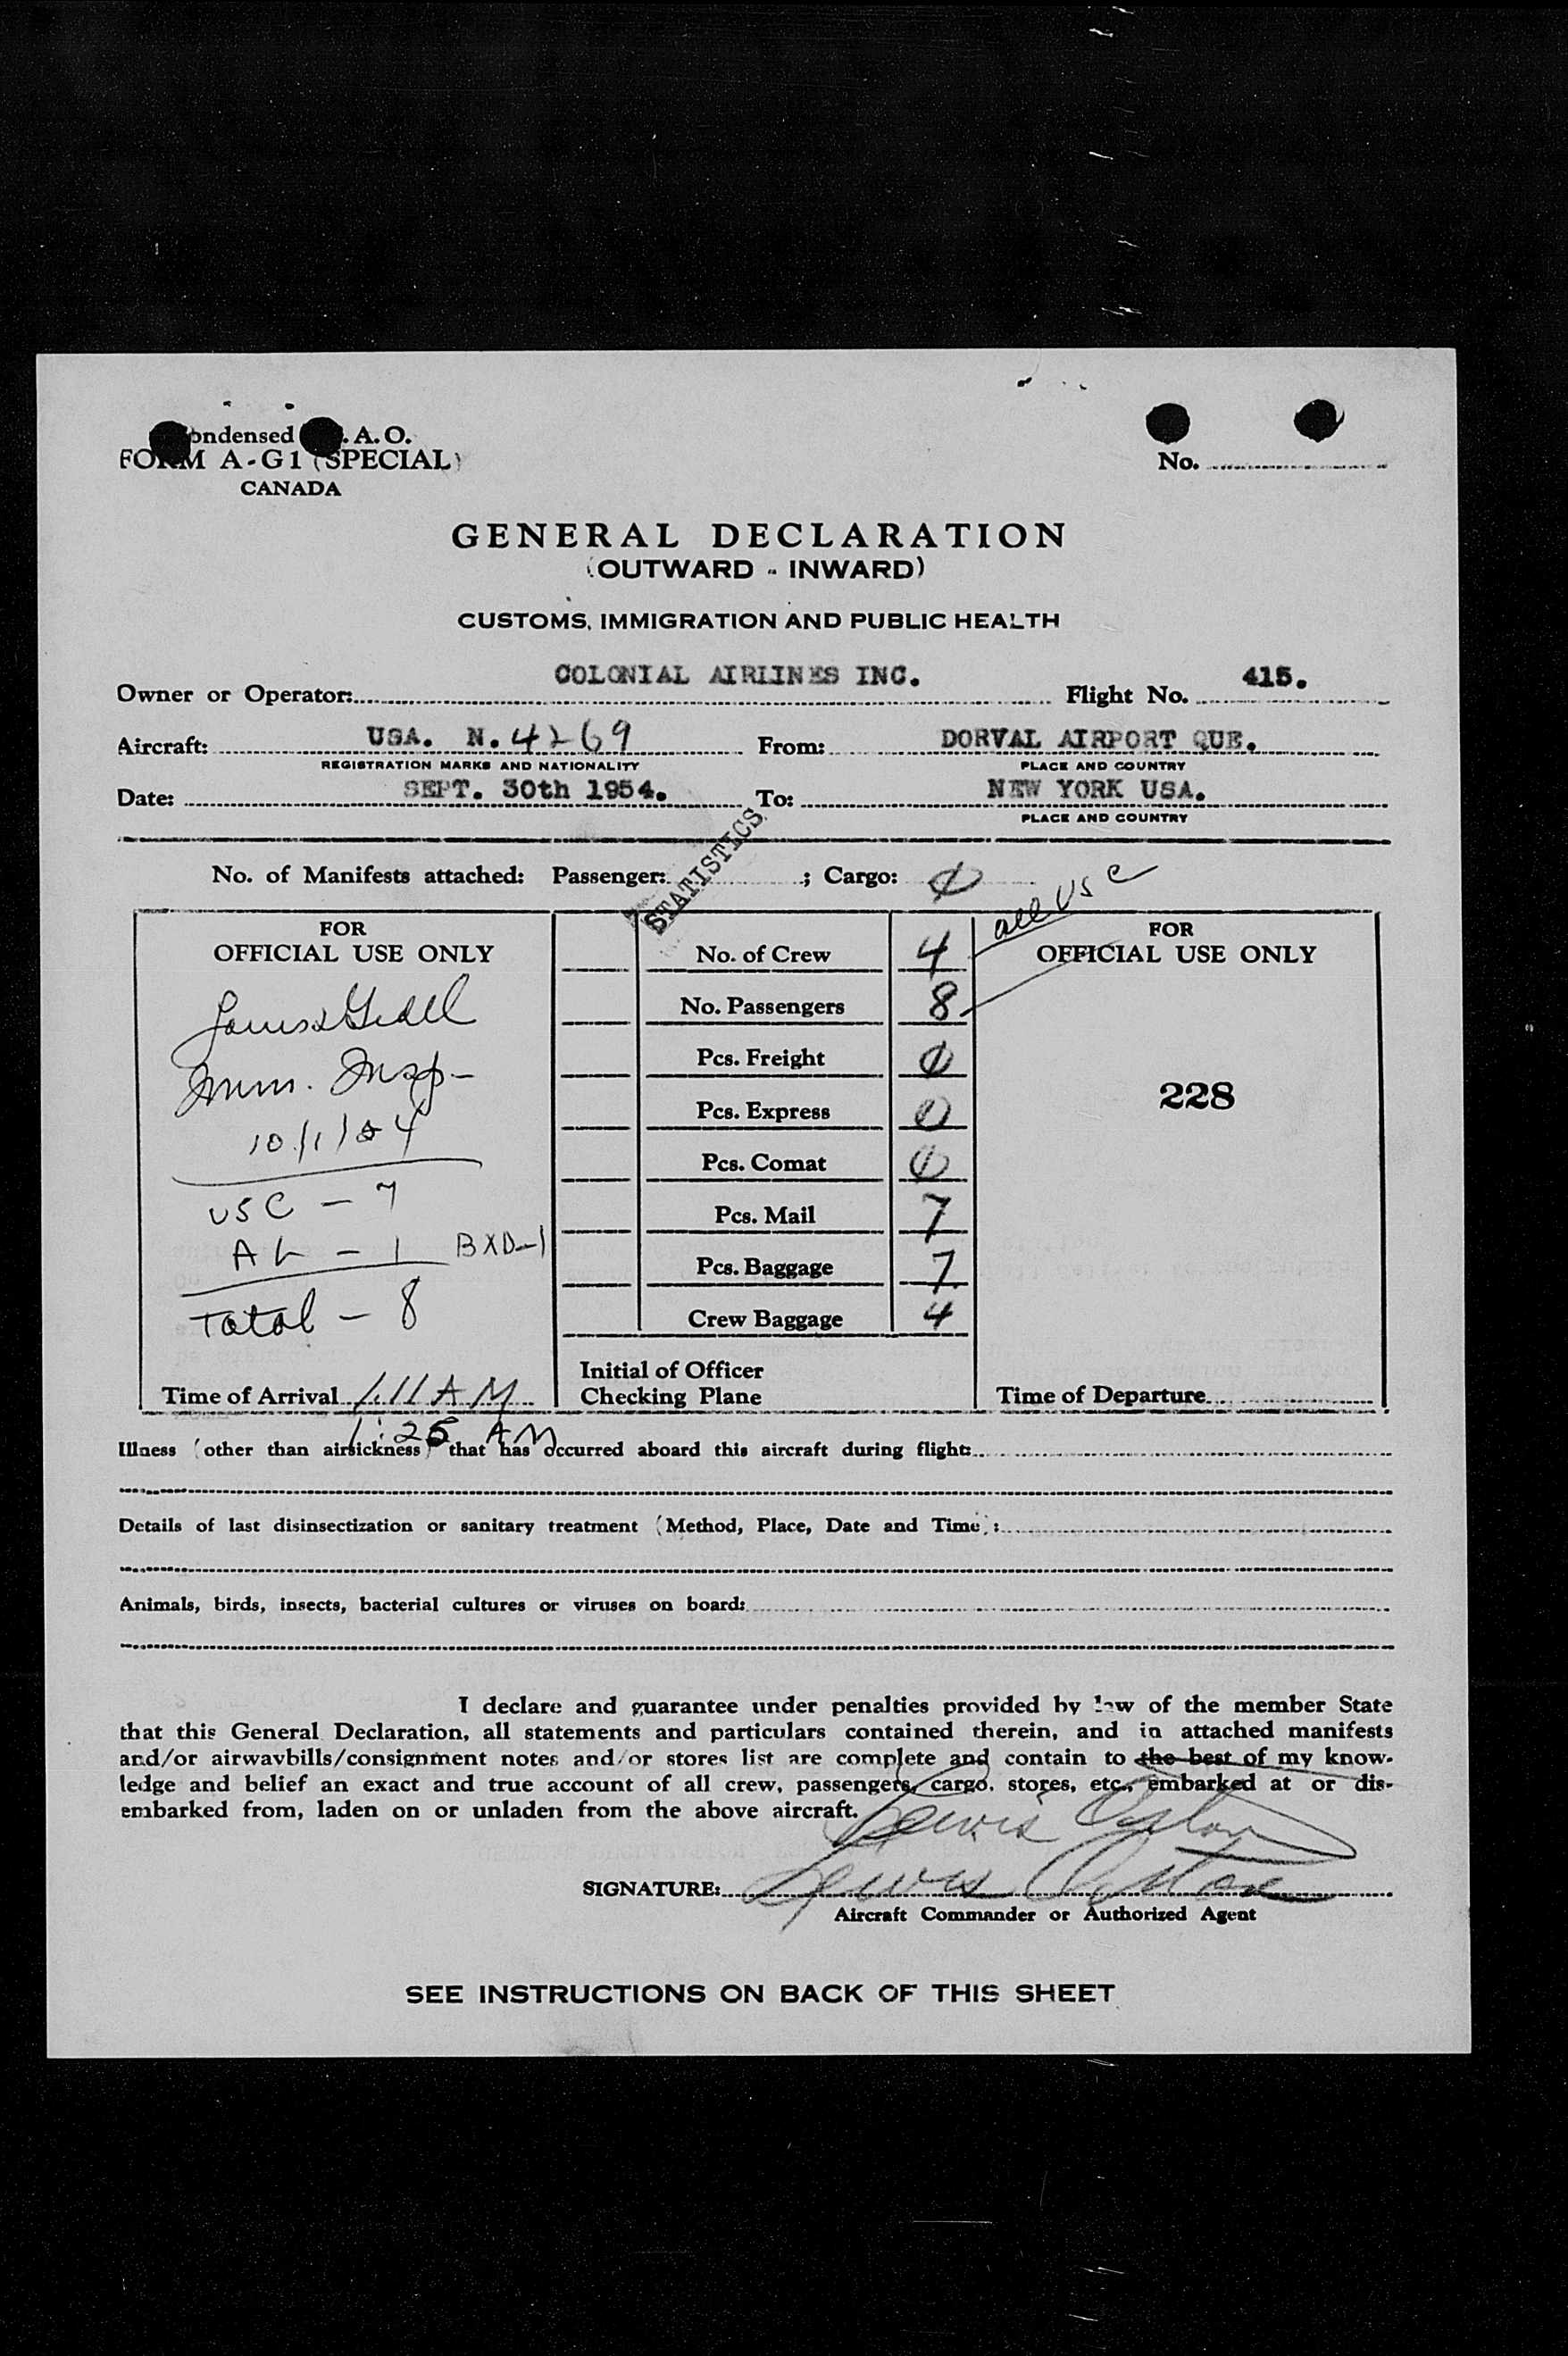 Condensed I.C.A.O.
FORM A-G1 (SPECIAL)
CANADA
No.
GENERAL DECLARATION
(OUTWARD - INWARD)
CUSTOMS, IMMIGRATION AND PUBLIC HEALTH
Owner or Operator: COLONIAL AIRLINES INC. Flight No. 415.
Aircraft: USA. N. 4269 From: DORVAL AIRPORT QUE.
REGISTRATION MARKS AND NATIONALITY PLACE AND COUNTRY
Date: SEPT. 30th 1954. To: NEW YORK USA.
PLACE AND COUNTRY
STATISTICS
No. of Manifests attached: Passenger: ; Cargo: 0
all USC
FOR
OFFICIAL USE ONLY
Imm. Insp-
10/1/54
USC - 7
AL - 1 BXD-1
Total - 8
Time of Arrival 1:11 AM
1:25 AM
No. of Crew 4
No. Passengers 8
Pcs. Freight 0
Pcs. Express 0
Pcs. Comat 0
Pcs. Mail 7
Pcs. Baggage 7
Crew Baggage 4
Initial of Officer
Checking Plane
FOR
OFFICIAL USE ONLY
228
Time of Departure
Illness (other than airsickness) that has occurred aboard this aircraft during flight:
Details of last disinsectization or sanitary treatment (Method, Place, Date and Time):
Animals, birds, insects, bacterial cultures or viruses on board:
I declare and guarantee under penalties provided by law of the member State
that this General Declaration, all statements and particulars contained therein, and in attached manifests
and/or airwaybills/consignment notes and/or stores list are complete and contain to the best of my know-
ledge and belief an exact and true account of all crew, passengers, cargo, stores, etc., embarked at or dis-
embarked from, laden on or unladen from the above aircraft.
Lewis
SIGNATURE: Lewis
Aircraft Commander or Authorized Agent
SEE INSTRUCTIONS ON BACK OF THIS SHEET